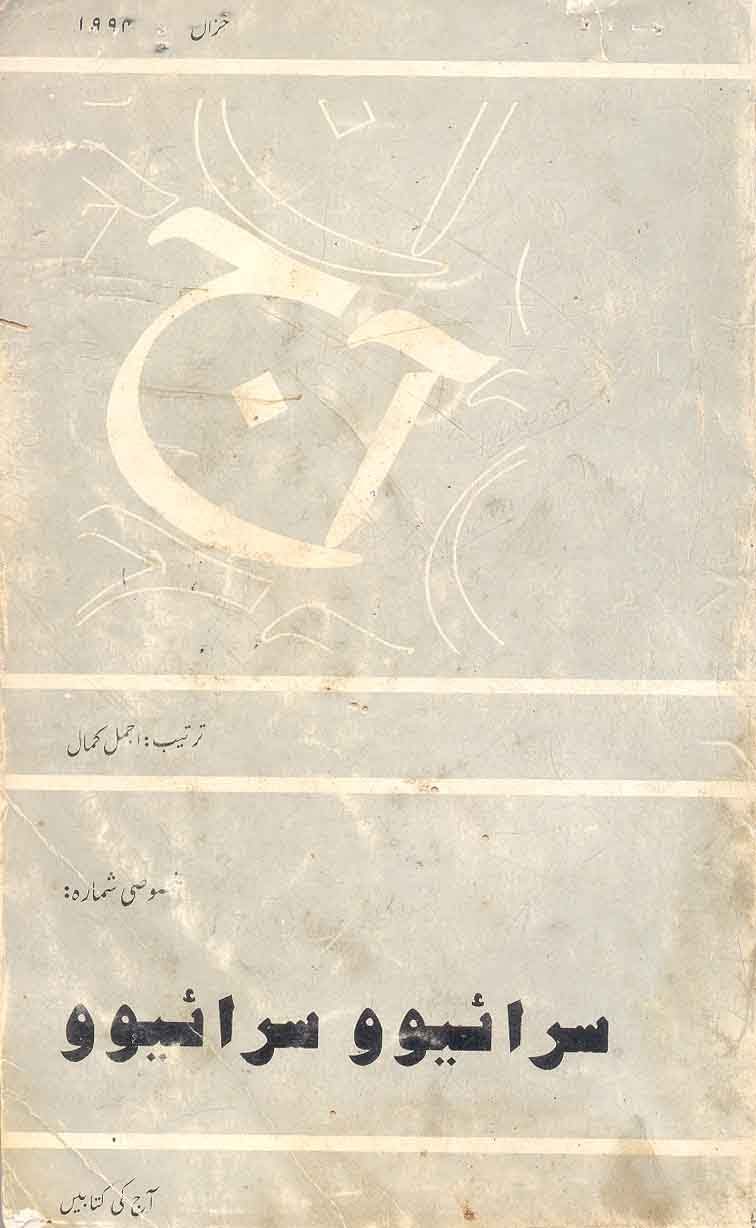 خزاں ۱۹۹۴
آج
ترتیب: اجمل کمال
خصوصی شمارہ:
سرائیوو سرائیوو
آج کی کتابیں